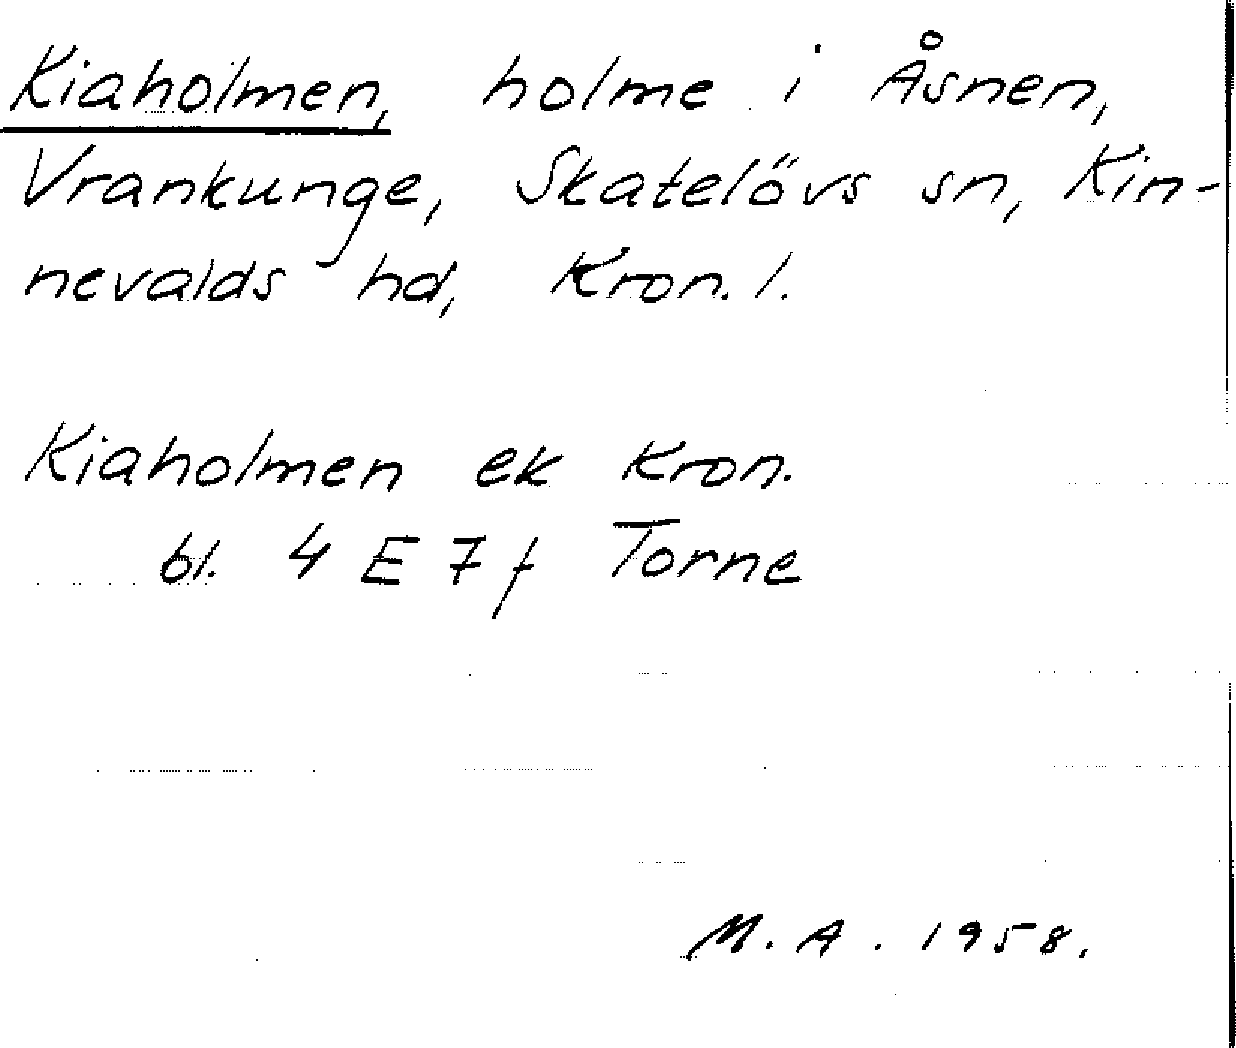 Kiaholmen, holme i Åsnen,
Vrankunge, Skatelövs sn, Kin-
nevalds hd, Kron. l.
Kiaholmen ek Kron.
bl. 4 E 7 f Torne
M. A. 1958.